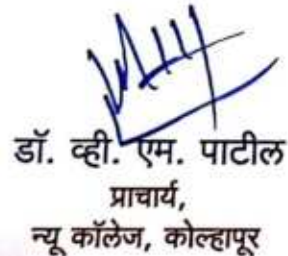 डॉ. व्ही. एम. पाटील
प्राचार्य,
न्यू कॉलेज, कोल्हापूर